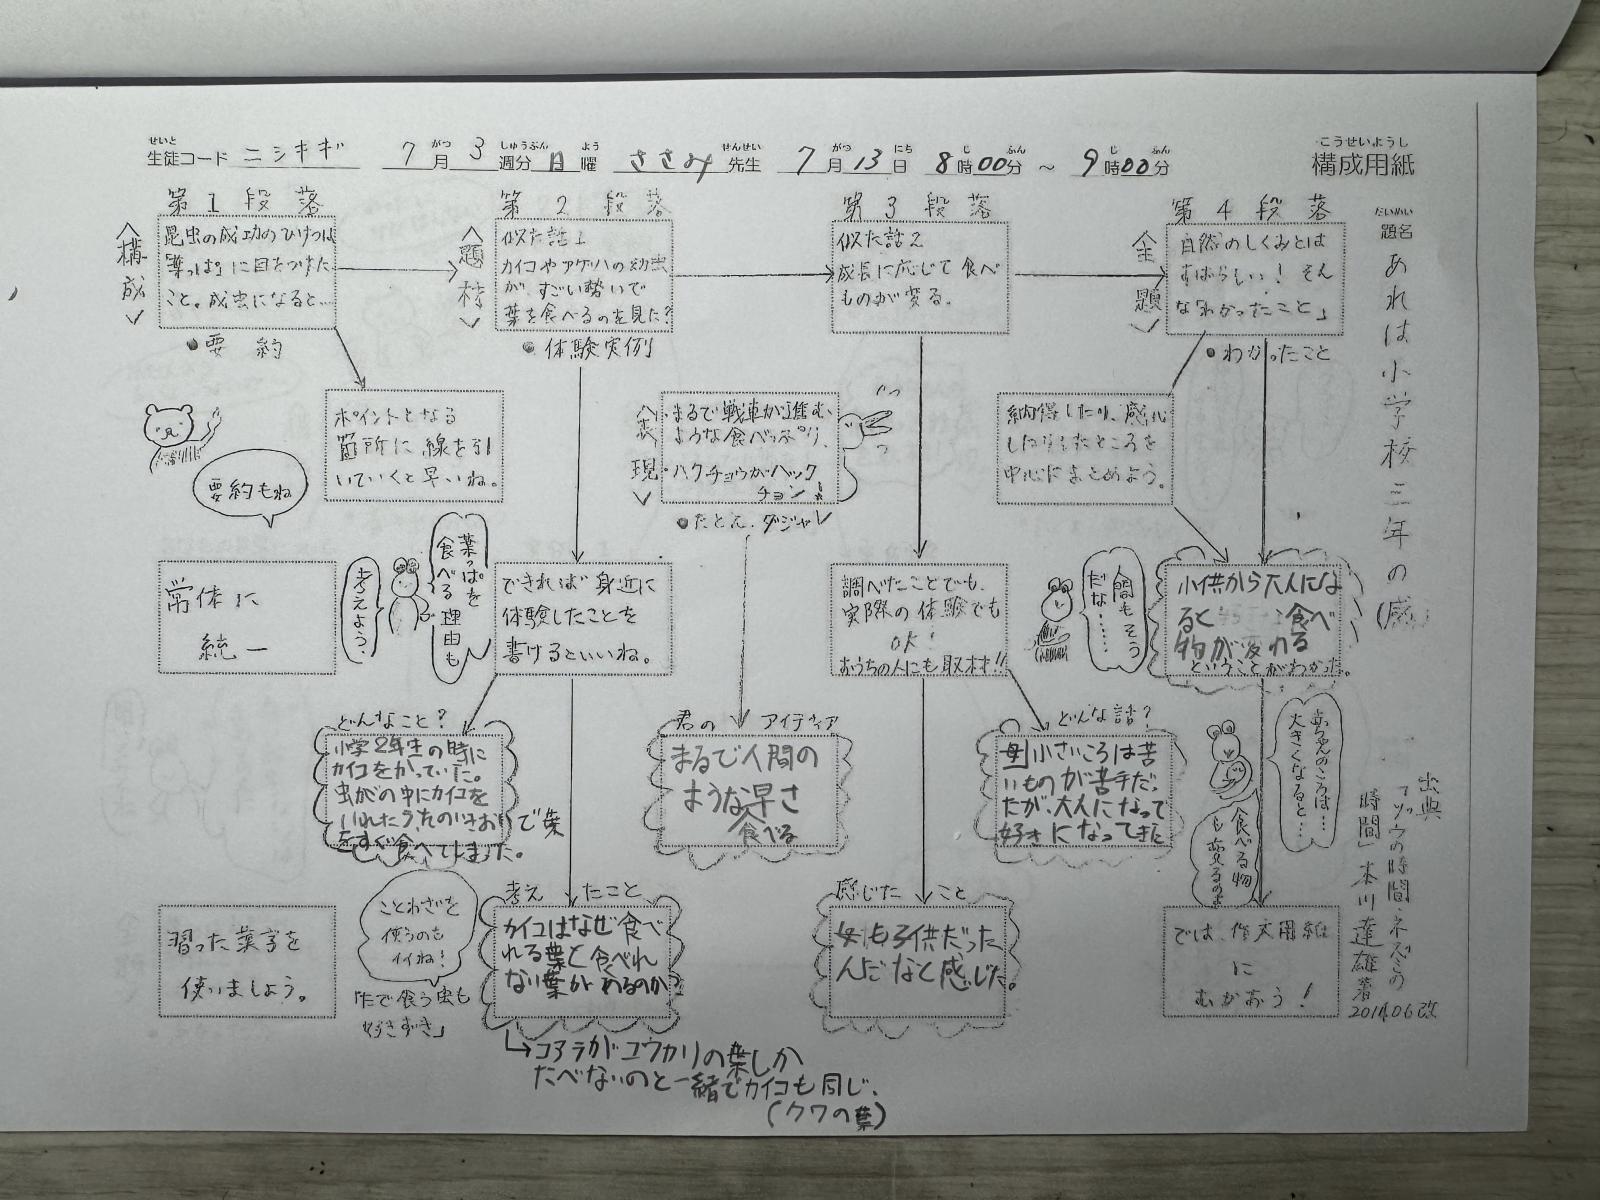 せいと がつ しゅうぶん よう せんせい がつ にち じ ふん じ ふん
生徒コード ニシキギ 7月 3週分 日曜 ささみ先生 7月13日 8時00分 ～ 9時00分
こうせいようし
構成用紙
だいめい
題名
あれは小学校三年の(感)
出典
「ゾウの時間・ネズミの
時間」本川達雄著
2014.06改
第1段落
<構成>
昆虫の成功のひけつは
「葉っぱ」に目をつけた
こと。成虫になると…
●要約
ポイントとなる
箇所に線を引
いていくと早いね。
要約もね
常体に
統一
習った漢字を
使いましょう。
第2段落
<題材>
似た話1
カイコやアゲハの幼虫
が、すごい勢いで
葉を食べるのを見た?
●体験実例
できれば身近に
体験したことを
書けるといいね。
葉っぱを
食べる理由も
考えよう、
どんなこと?
小学2年生の時に
カイコをかっていた。
虫かごの中にカイコを
いれたら、ものいきおいで葉
をすぐ食べてしまった。
考えたこと
カイコはなぜ食べ
れる葉と食べれ
ない葉があるのか
→コアラがユウカリの葉しか
たべないのと一緒でカイコも同じ。
(クワの葉)
ことわざを
使うのも
イイね!
「たで食う虫も
好きずき」
<表現>
・まるで戦車が進む
ような食べっぷり、
・ハクチョウがハック
チョン!
●たとえ・ダジャレ
君のアイディア
まるで人間の
ような早さ
食べる
第3段落
似た話2
成長に応じて食べ
ものが変る。
調べたことでも、
実際の体験でも
OK!
おうちの人にも取材!!
どんな話?
母 小さいころは苦
いものが苦手だっ
たが、大人になって
好きになってきた
感じたこと
母も子供だった
んだなと感じた。
第4段落
<主題>
自然のしくみとは
すばらしい! そん
な「わかったこと」
●わかったこと
納得したり、感心
したりしたところを
中心にまとめよう。
人間もそう
だな……
小供から大人にな
ると食べ
物が変わる
ということがわかった。
赤ちゃんのころは…
大きくなると…
食べる物
も変るのさ
では、作文用紙
に
むかおう!